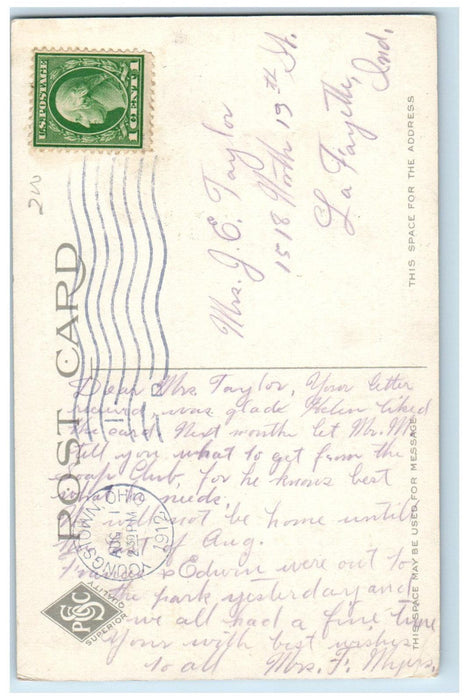 U.S. POSTAGE
1 CENT 1
20
POST CARD
THIS SPACE FOR THE ADDRESS
THIS SPACE MAY BE USED FOR MESSAGE
Mrs. J. E. Taylor
1518 North 19th St.
La Fayette,
Ind.
YOUNGSTOWN, OHIO
AUG 1
2:30 PM
1912
Dear Mrs Taylor, Your letter
received was glad Helen liked
the card. Next month let Mr. M.
tell you what to get from the
soap Club, for he knows best
what he needs.
will not be home until
of Aug.
& Edwin were out to
the park yesterday and
we all had a fine time
Your with best wishes
to all Mrs. F. Myers.
SUPERIOR QUALITY